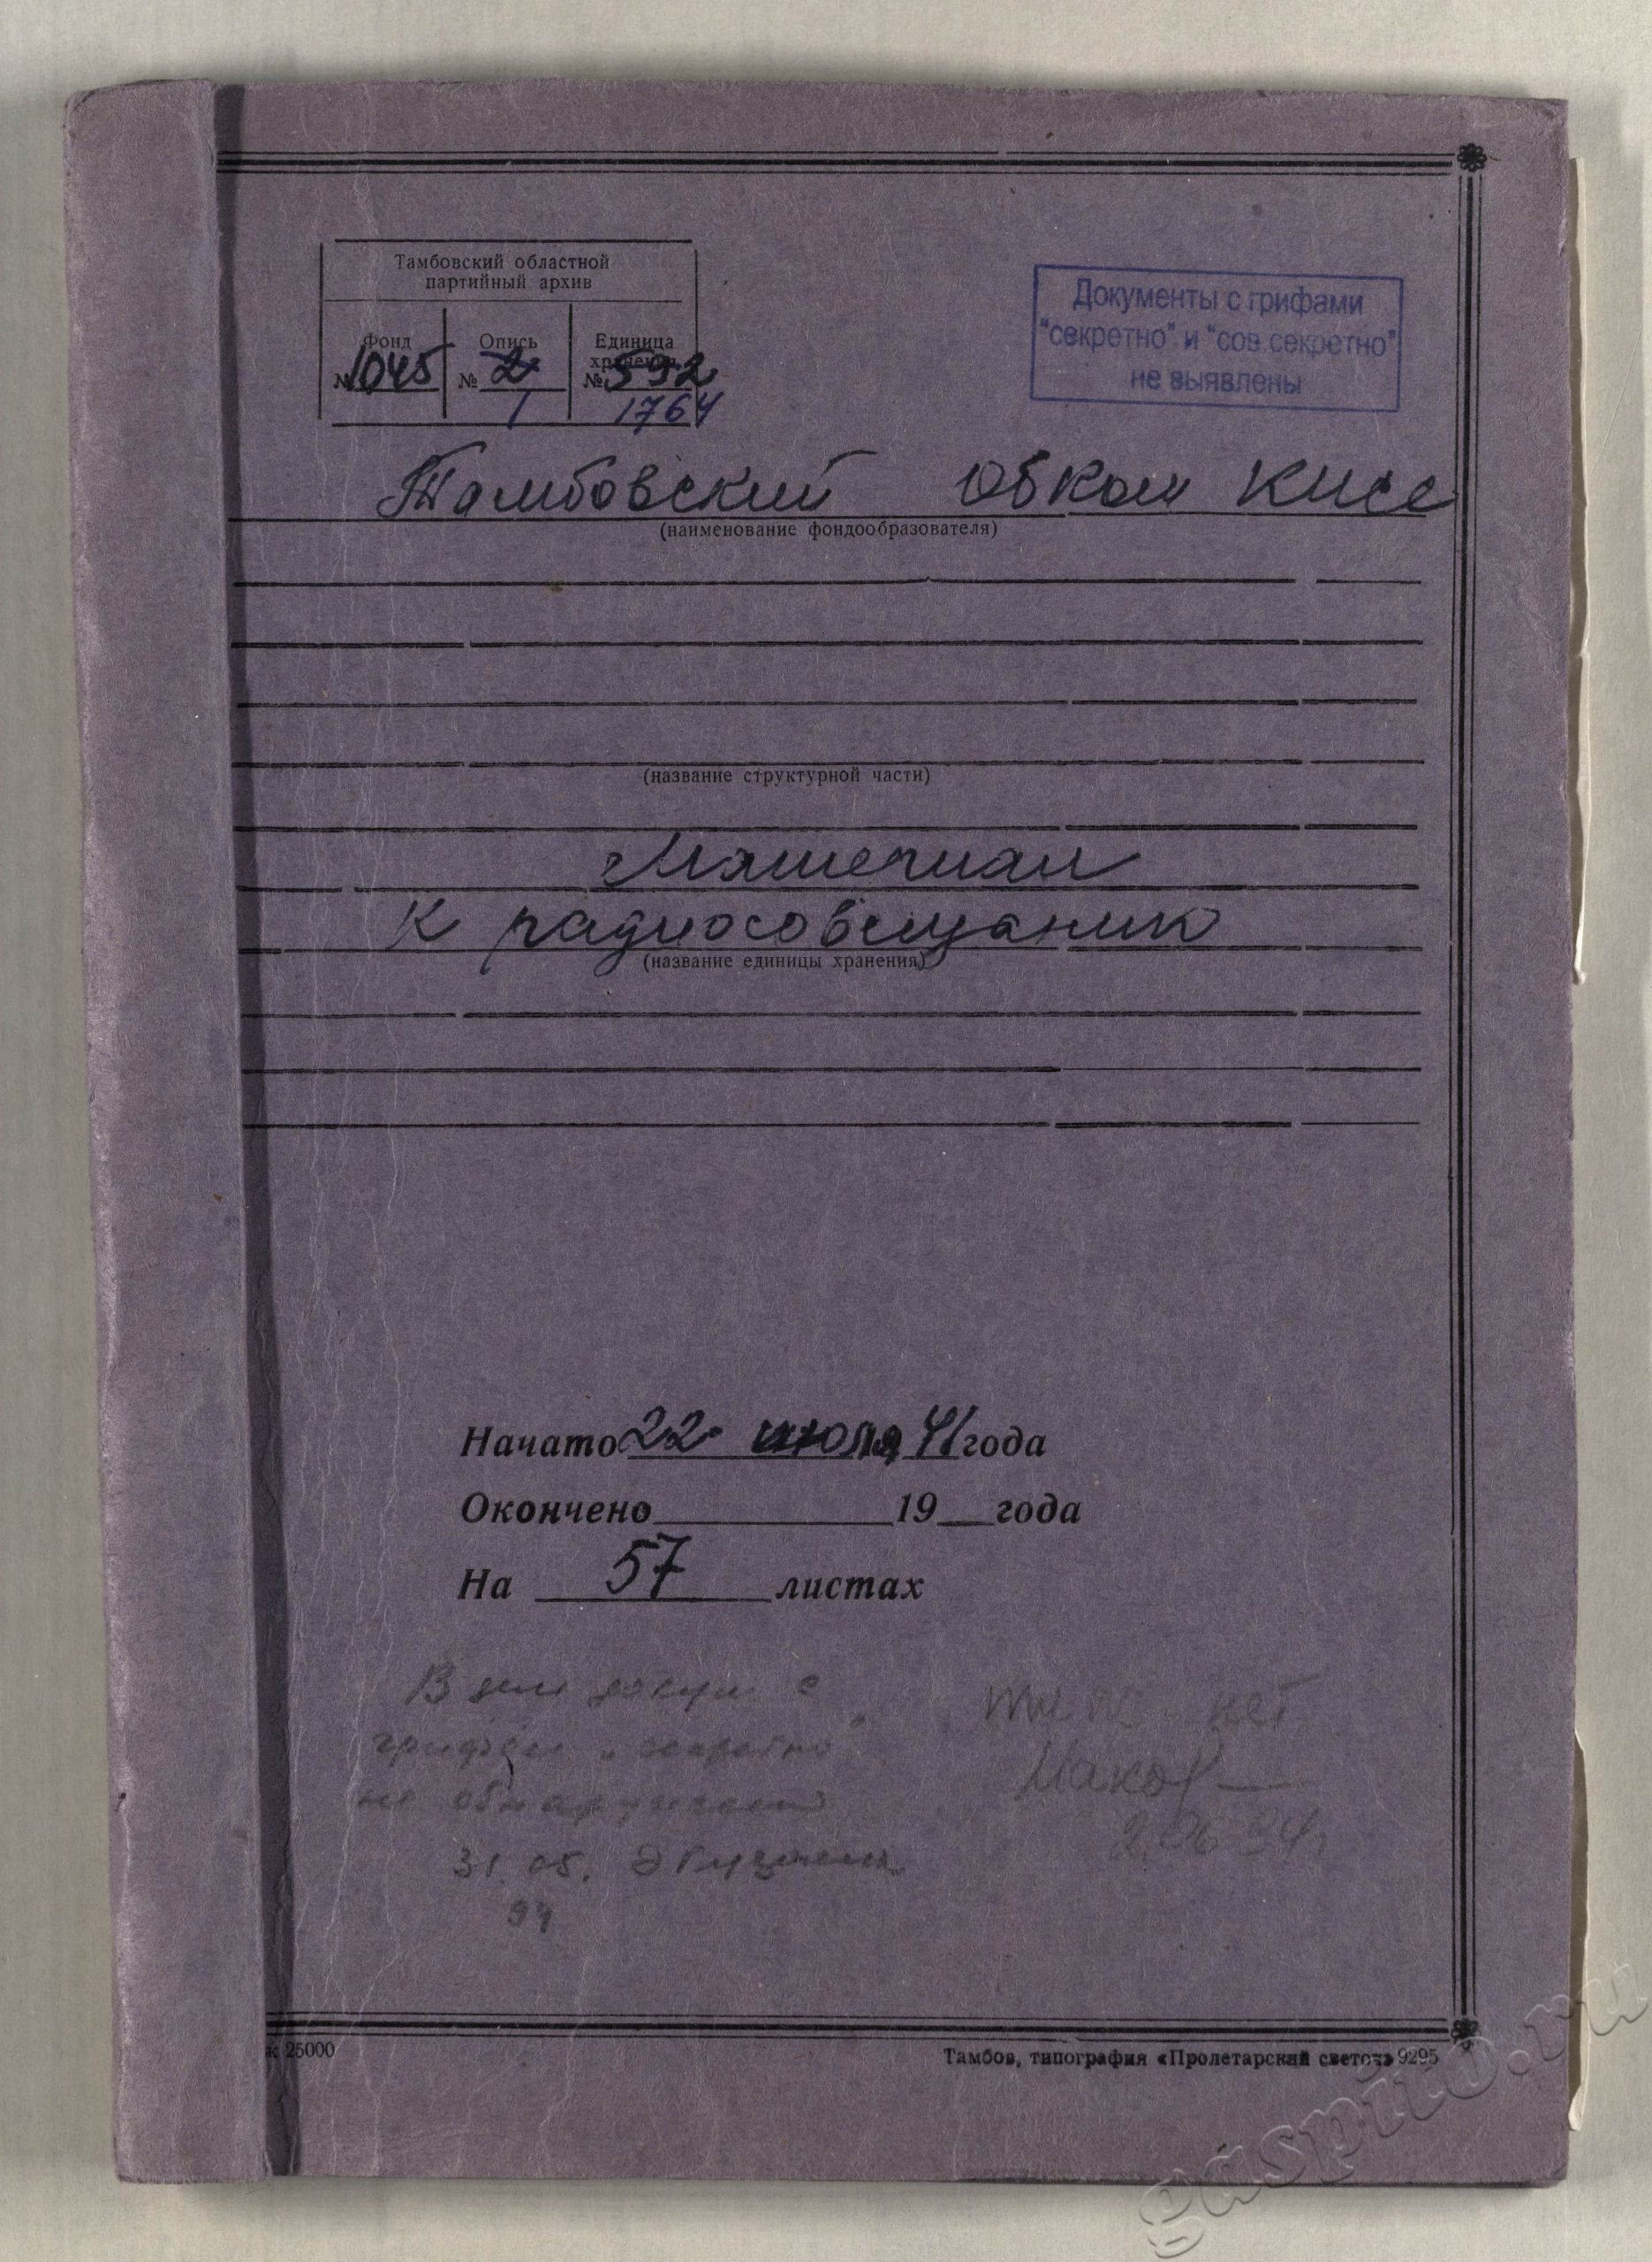 Тамбовский областной
партийный архив
Фонд Опись Единица хранения
№ 1045 № 2 № 592
1 1764
Документы с грифами
"секретно" и "сов.секретно"
не выявлены
Тамбовский обком КПСС
(наименование фондообразователя)
(название структурной части)
Материал
к радиосовещанию
(название единицы хранения)
Начато 22 июля 41 года
Окончено 19 года
На 57 листах
В деле докум с
грифом „секретно"
не обнаружено
31.05.
94
нет
Макар
2.06.94г
25000
Тамбов, типография «Пролетарский светоч» 9295
gaspito.ru